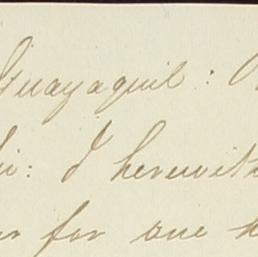 Guayaquil:
I herewith
for one